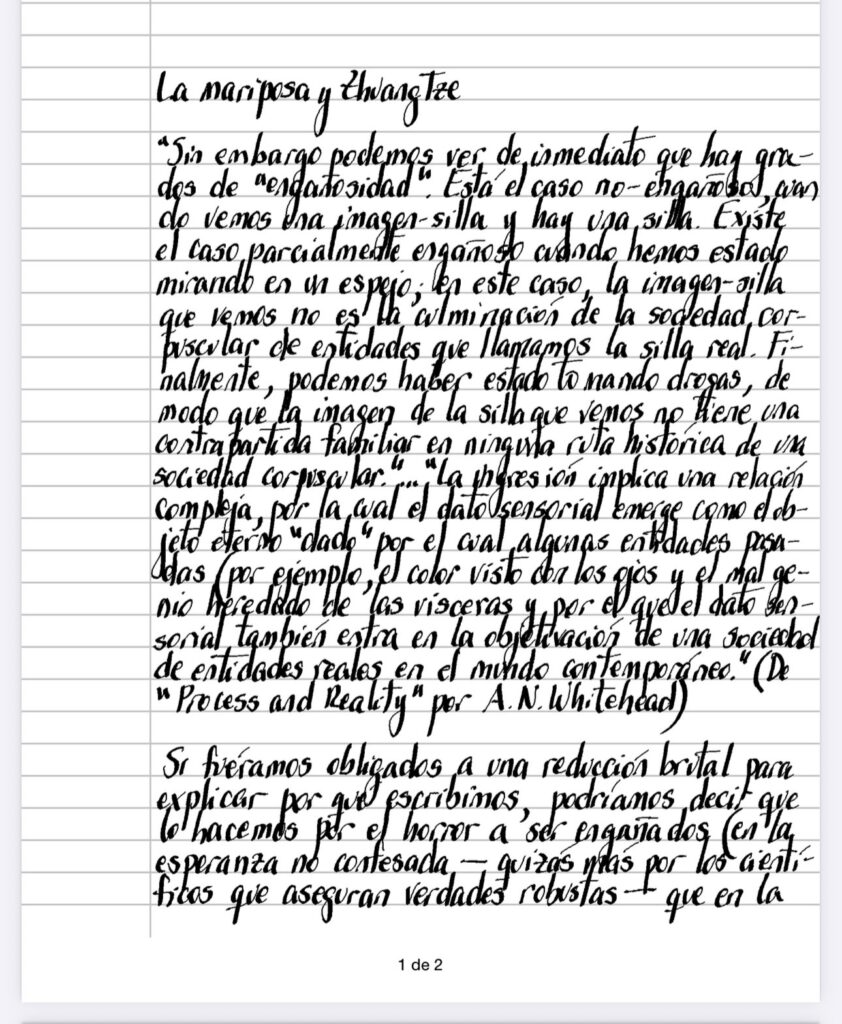 La mariposa y ZhuangTze
"Sin embargo podemos ver de inmediato que hay gra-
dos de "engañosidad". Está el caso no-engañoso, cuan
do vemos una imagen-silla y hay una silla. Existe
el caso parcialmente engañoso cuando hemos estado
mirando en un espejo; en este caso, la imagen-silla
que vemos no es la culminación de la sociedad cor-
puscular de entidades que llamamos la silla real. Fi-
nalmente, podemos haber estado tomando drogas, de
modo que la imagen de la silla que vemos no tiene una
contrapartida familiar en ninguna ruta histórica de una
sociedad corpuscular."... "La ingresión implica una relación
compleja, por la cual el dato sensorial emerge como el ob-
jeto eterno "dado" por el cual algunas entidades pasa-
das (por ejemplo, el color visto con los ojos y el mal ge-
nio heredado de las vísceras y por el que el dato sen-
sorial también entra en la objetivación de una sociedad
de entidades reales en el mundo contemporáneo." (De
"Process and Reality" por A.N. Whitehead)
Si fuéramos obligados a una reducción brutal para
explicar por qué escribimos, podríamos decir que
lo hacemos por el horror a ser engañados (en la
esperanza no confesada — quizás más por los cientí-
ficos que aseguran verdades robustas — que en la
1 de 2